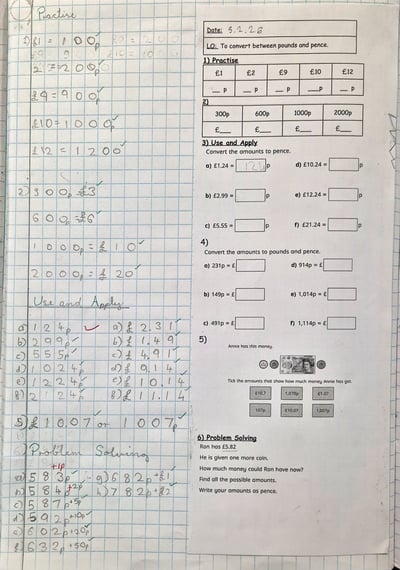 Practise
1) £1 = 100p
2 = 200p
£9 = 900p
£10 = 1000p
£12 = 1200
2) 300p = £3
600p = £6
1000p = £10
2000p = £20
Use and Apply
a) 124p a) £2.31
b) 299p b) £1.49
c) 555p c) £4.91
d) 1024p d) £9.14
e) 1224p e) £10.14
f) 2124p f) £11.14
5) £10.07 or 1007p
6) Problem Solving
+1p
a) 583p g) 682p +£1
b) 584p +2p h) 782p +£2
c) 587p +5p
d) 592p +10p
e) 602p +20p
f) 632p +50p
Date: 5.2.26
LO: To convert between pounds and pence.
1) Practise
£1 £2 £9 £10 £12
__ p __ p __ p __p __ p
2)
300p 600p 1000p 2000p
£__ £__ £__ £__
3) Use and Apply
Convert the amounts to pence.
a) £1.24 = 124p d) £10.24 = p
b) £2.99 = p e) £12.24 = p
c) £5.55 = p f) £21.24 = p
4)
Convert the amounts to pounds and pence.
a) 231p = £ d) 914p = £
b) 149p = £ e) 1,014p = £
c) 491p = £ f) 1,114p = £
5)
Annie has this money.
Tick the amounts that show how much money Annie has got.
£10.7 1,070p £1.07
107p £10.07 1,007p
6) Problem Solving
Ron has £5.82
He is given one more coin.
How much money could Ron have now?
Find all the possible amounts.
Write your amounts as pence.